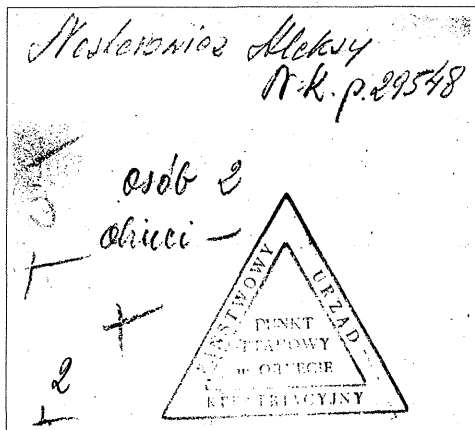 Nesterowicz Aleksy
N.K. p. 29548
osób 2
dzieci –
PAŃSTWOWY URZĄD
REPATRIACYJNY
PUNKT
ETAPOWY
w
2